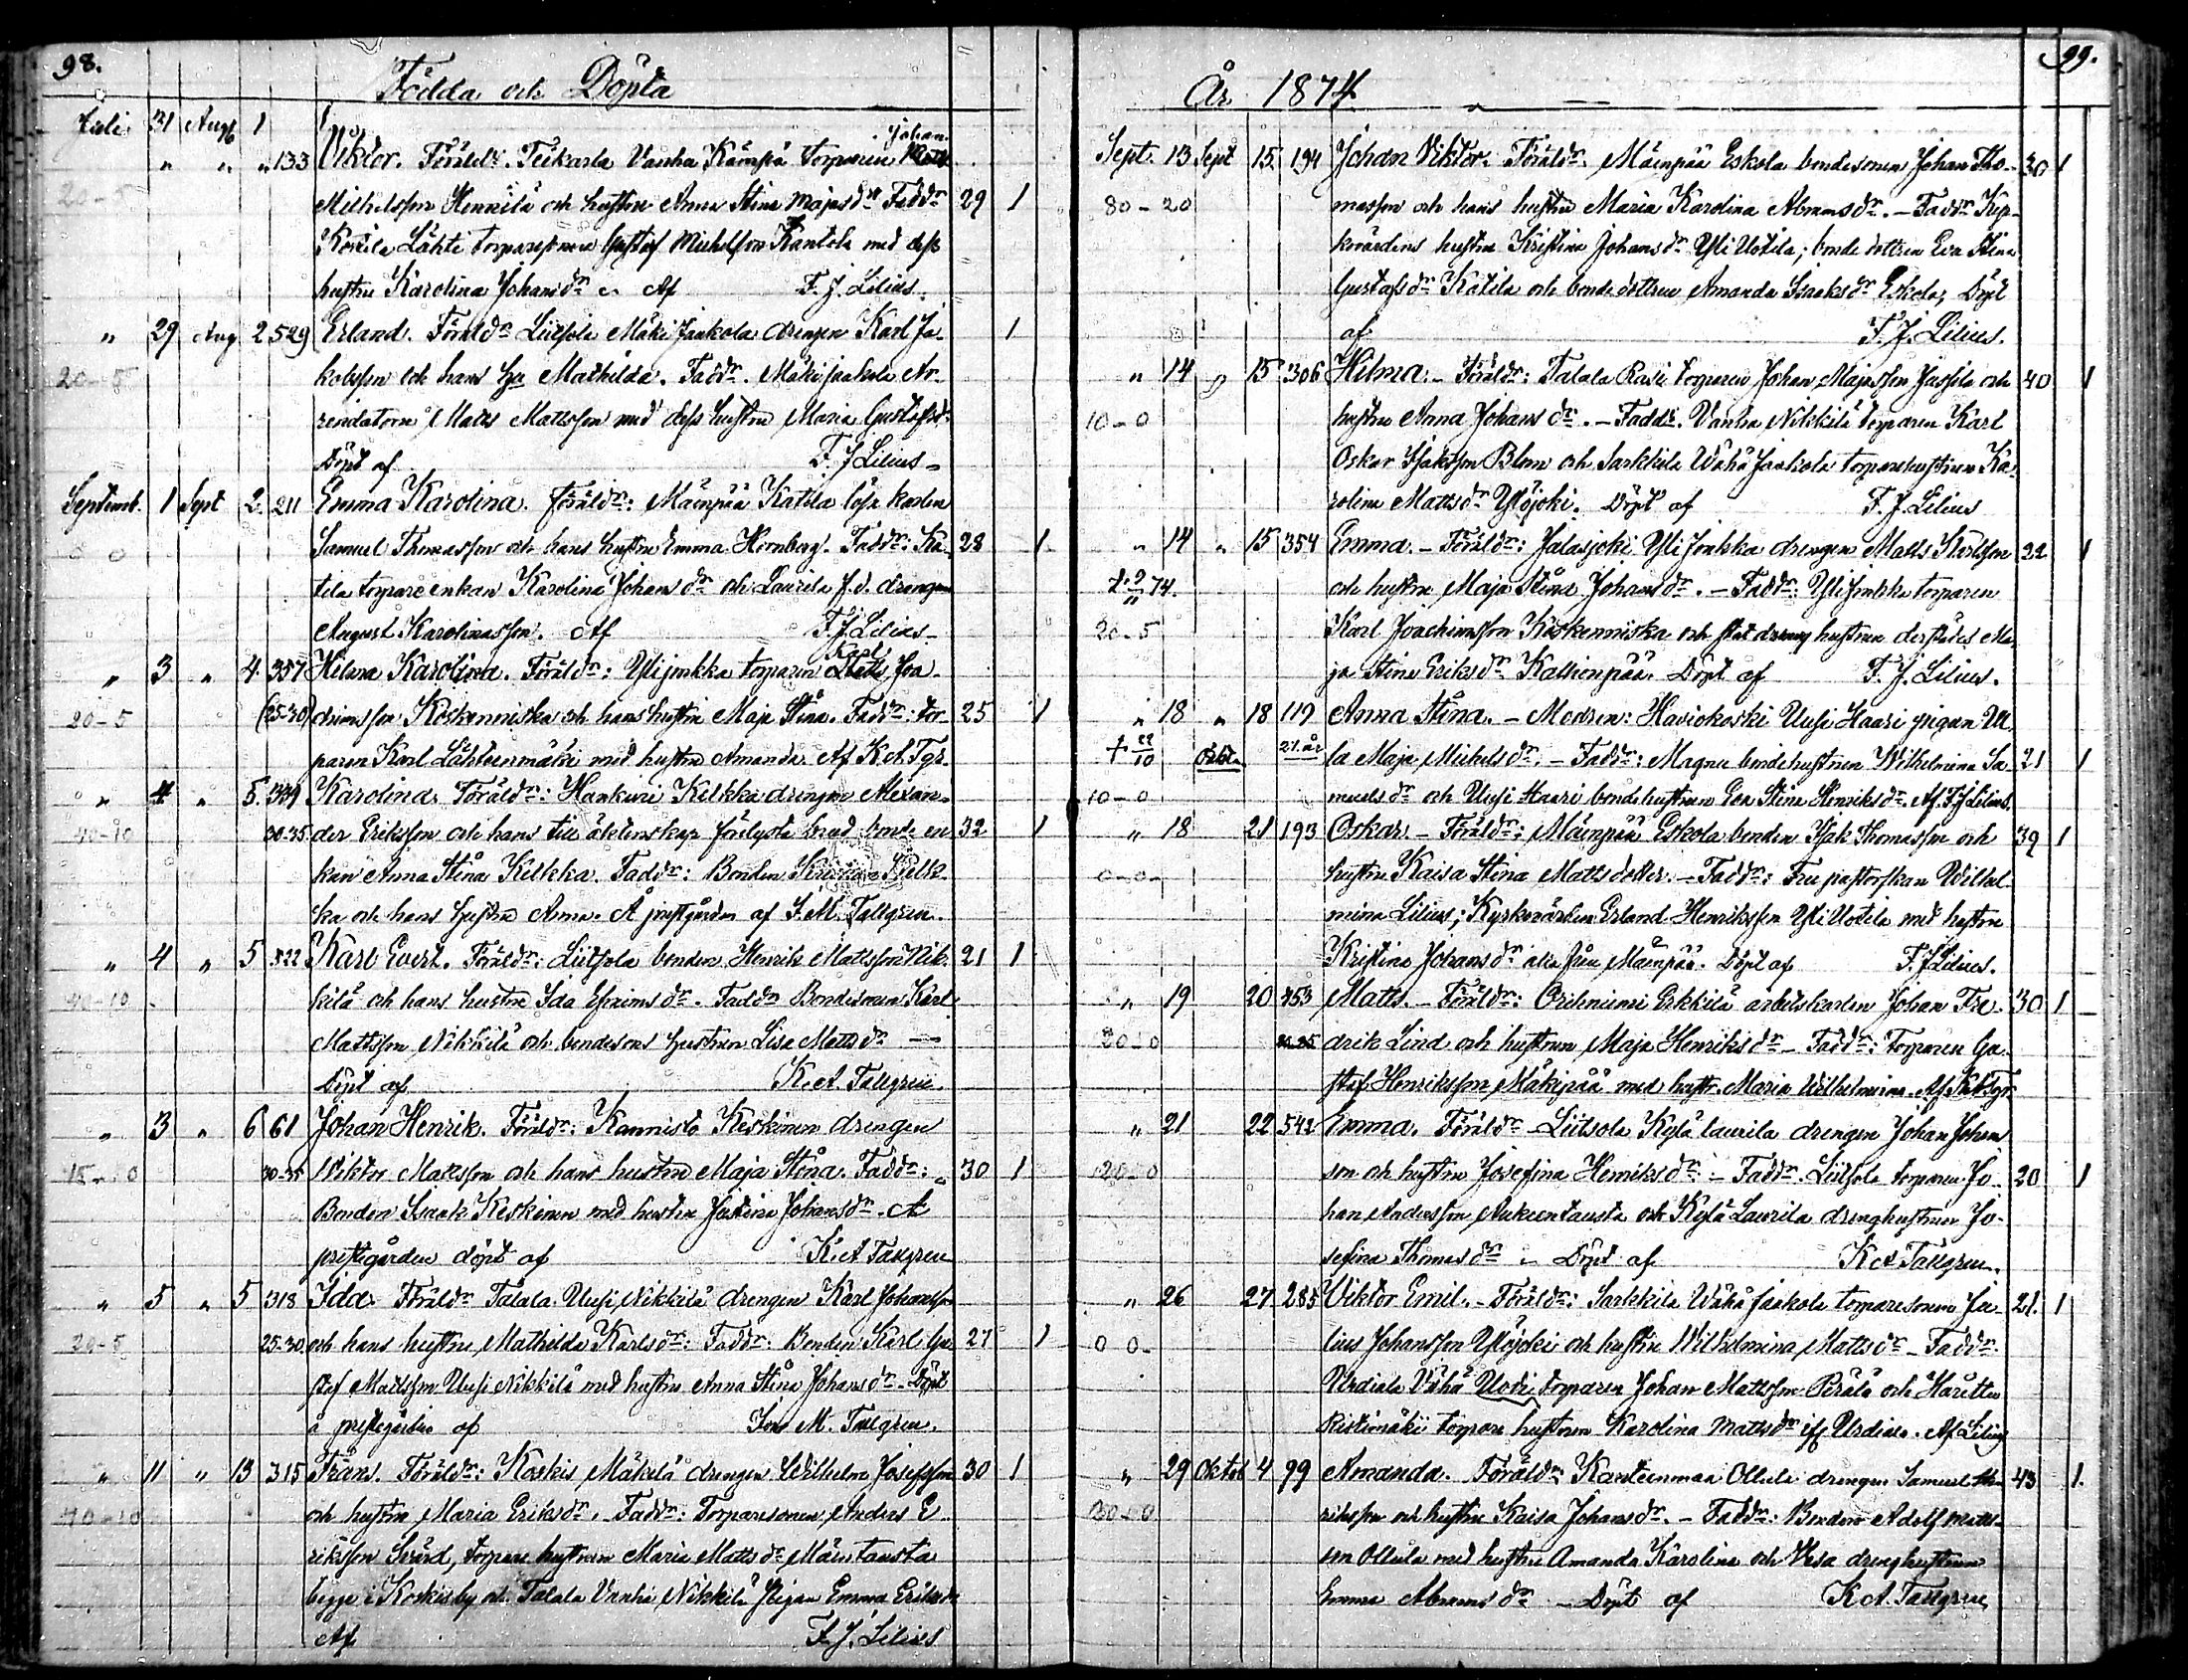 98.
Födda och Döpta
Juli 31 Aug 1
" " " 133 Viktor. Föräldr. Teikarla Vanha Kämpä torparen Johan
20-5 Michelsson Hennilä och hustru Anna Stina Majasdr Faddr 29 1
Lähti torparesonen Gustaf Michelsson Kantola med dess
hustru Karolina Johansdr. Af F. J. Lilius.
" 29 Aug 2 529 Erland. Föräldr Liitsola Mäki Jaakola drengen Karl Ja- 1
20-5 kobsson och hans hu Mathilda. Faddr. Mäkijaakola Ar-
rendatorn Matts Mattsson med dess hustru Maria Gustafsd.
Döpt af F. J Lilius-
Septemb. 1 Sept 2. 211 Emma Karolina. Föräldr: Mäenpää Katila lösa karlen
0 0 Samuel Thomasson och hans hustru Emma Hornberg. Faddr: Ka- 28 1
tila torpare enkan Karolina Johansdr och Laurila f.d. drengen
August Karolinasson. Af F. J. Lilius-
" 3 " 4. 357 Hilma Karolina. Föräldr: Ylijoukka torparen Karl Joa-
20-5 (25-30) chimsson Koskenniska och hans hustru Maja Stina. Faddr: tor- 25 1
paren Karl Lähteenmäki med hustru Amanda. Af K. A. Tgr.
" 4 " 5. 339 Karolina. Föräldr: Hankuri Kilkka drengen Alexan-
40-10 30-35 der Eriksson och hans till äktenskap förlysta brud bonde en 32 1
kan Anna Stina Kilkka. Faddr: Bonden Kilk-
ka och hans hustru Anna. Å prestgården af I. M. Tallgren.
" 4 " 5 322 Karl Evert. Föräldr: Liitsola bonden Henrik Mattsson Nik- 21 1
40-10 kilä och hans hustru Ida Efraimsdr. Faddr Bondesonen Karl
Mattsson Nikkilä och bondesons hustrun Lisa Mattsdr —
Döpt af K. A. Tallgren.
" 3 " 6 61 Johan Henrik. Föräldr: Kannisto Keskinen drengen
15-0 30-35 Viktor Mattsson och hans hustru Maja Stina. Faddr: 30 1
Bonden Isaak Keskinen med hustru Justina Johansdr. Å
prestgården döpt af K. A Tallgren
" 5 " 5 318 Ida. Föräldr Talala Uusi Nikkilä drengen Karl Johansson
20-5 25-30 och hans hustru Mathilda Karlsdr: Faddr: Bonden Karl Gu- 27 1
staf Mattsson Uusi Nikkilä med hustru Anna Stina Johansdr. Döpt
å prestgården af M. Tallgren.
" 11 " 13 315 Frans. Föräldr: Koskis Mäkilä drengen Wilhelm Josefsson 30 1
40-10 och hustru Maria Eriksdr. Faddr: Torparesonen Anders E-
riksson Svärd, torpare hustrun Maria Mattsdr Mäentausta
begge i Koskis by och Talala Vanha Nikkilä Pigan Emma Eriksdr
Af F. J. Lilius
99.
År 1874
Sept. 13 Sept 15. 194 Johan Viktor. Föräldr: Mäenpää Eskola bondesonen Johan Tho- 30 1
80-20 masson och hans hustru Maria Karolina Abramsdr. - Faddr Kyr-
kvärdens hustru Kristina Johansdr Yli Uotila; bonde dottren Eva Stina
Gustafsdr Katila och bondedottren Amanda Isaaksdr Eskola, Döpt
af F. J. Lilius.
" 14 " 15 306 Hilma. - Föräldr: Talala Rasi torparen Johan Majasson Jussila och 40 1
10-0 hustru Anna Johansdr. - Faddr. Vanha Nikkilä torparen Karl
Oskar Isaksson Blom och Sarkkila Wähä Jaakola torparehustrun Ka-
rolina Mattsdr Ylöjoki. Döpt af F. J. Lilius
" 14 " 15 354 Emma. - Föräldr: Jalasjoki Yli Joukka drengen Matts Karlsson 22 1
och hustru Maja Stina Johansdr. - Faddr: Ylijoukka torparen
20-5 Karl Joachimsson Koskenniska och stat dreng hustrun derstädes Ma-
ja Stina Eriksdr Kallionpää. Döpt af F. J. Lilius.
" 18 " 18 119 Anna Stina. - Modren: Haviokoski Uusi Haari pigan Ul-
21 år la Maja Michelsdr. - Faddr: Magnu bondehustrun Wilhelmina Sa- 21 1
10-0 muelsdr och Uusi Haari bondehustrun Eva Stina Henriksdr. Af F. J Lilius.
" 18 21 193 Oskar - Föräldr: Mäenpää Eskola bonden Isak Thomasson och 39 1
0-0- hustru Kaisa Stina Matts dotter. - Faddr: Fru pastorskan Wilhel-
mina Lilius; Kyrkvärden Erland Henriksson Yli Uotila med hustru
Kristina Johansdr alla från Mäenpää. Döpt af F. J Lilius.
" 19 20 453 Matts. - Föräldr: Orihniemi Erkkilä arbetskarlen Johan Fre- 30 1
20-0 drik Lind och hustrun Maja Henriksdr - Faddr: Torparen Gu-
staf Henriksson Mäkipää med hustr. Maria Wilhelmina. Af K A Tgr
" 21 22 542 Emma. Föräldr - Liitsola Kylä laurila drengen Johan Johans
20-0 son och hustru Josefina Henriksdr: - Faddr. Liitsola torparen Jo- 20 1
han Andersson Aukeentausta och Kylä Laurila drenghustrun Jo-
sefina Thomasdr - Döpt af K A Tallgren.
" 26 27 285 Viktor Emil. - Föräldr: Sarkkila Wähä Jaakola torparesonen Ju- 21. 1
0 0- lius Johansson Ylöjoki och hustru Wilhelmina Mattsdr - Faddr.
Urdiala Vähä Uoti torparen Johan Mattsson Perälä och
torpare hustrun Karolina Mattsdr ifr Urdiala. Af Lilius
" 29 Oktob 4 99 Amanda. Föräldr: Kanteenmaa Ollila drengen Samuel He- 43 1.
30-0 nriksson och hustru Kaisa Johansdr. - Faddr: Bonden Adolf Matts-
son Ollila med hustru Amanda Karolina och Vesa drenghustrun
Emma Abramsdr - Döpt af K A. Tallgren